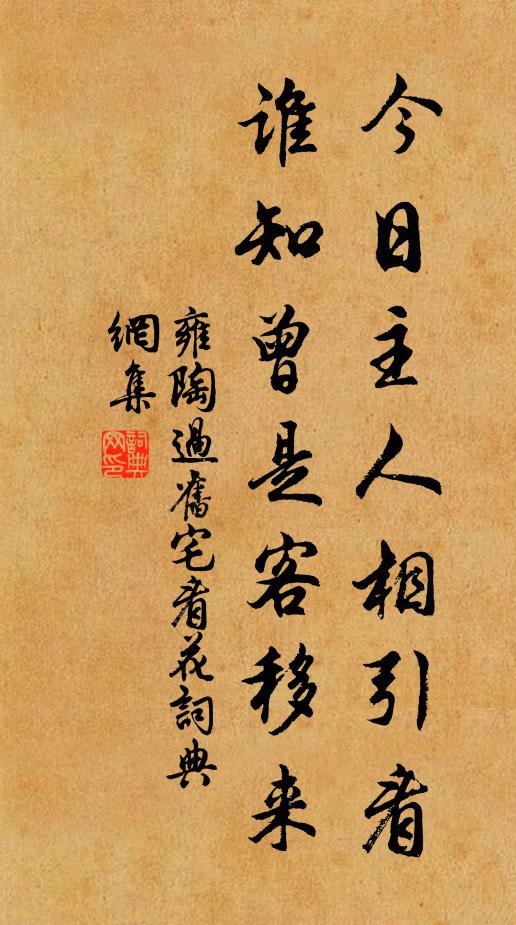 今日主人相引看
谁知曾是客移来
雍陶過舊宅看花詞典
網集
詞典
网印